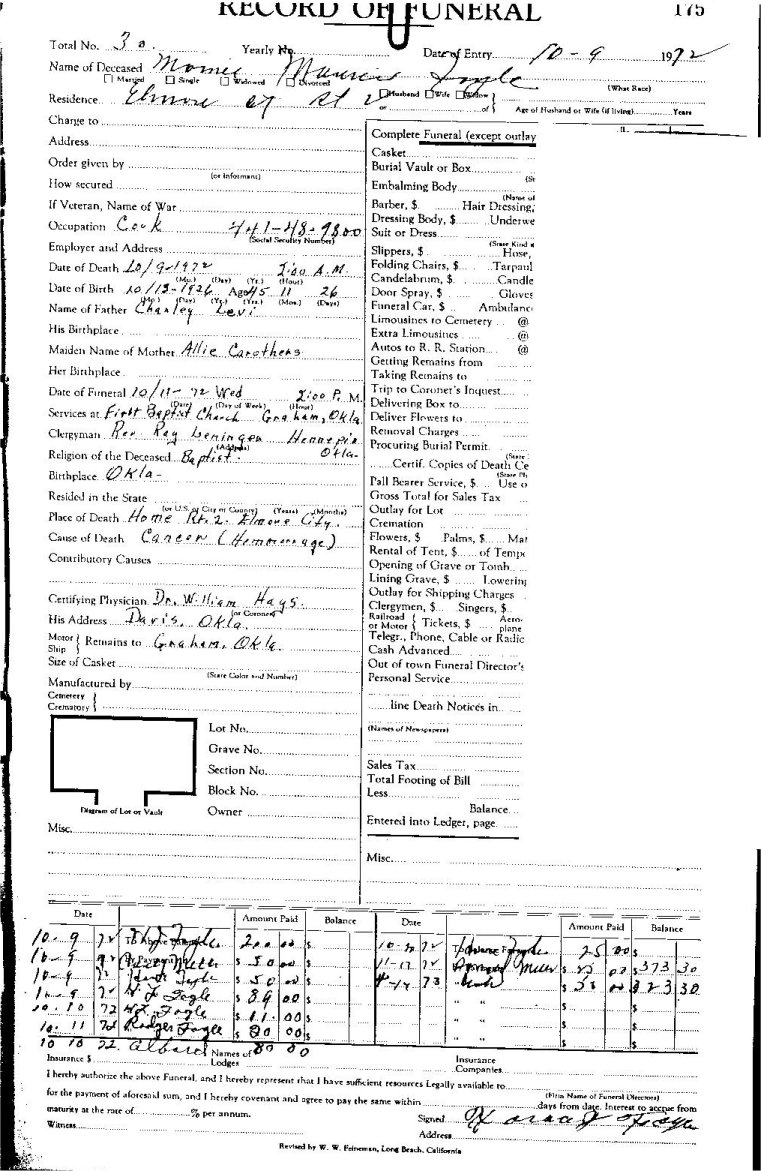 RECORD OF FUNERAL 175
Total No. 30 Yearly No. Date of Entry 10-9 1972
Name of Deceased Maurice
Married Single Widowed Divorced Husband Wife Widow or of (What Race)
Residence Elmore Age of Husband or Wife (if living) Years
Charge to
Address
Order given by
(or Informant)
How secured
If Veteran, Name of War
Occupation Cook 441-48-9800
(Social Security Number)
Employer and Address
Date of Death 10/9-1972 2:00 A.M.
(Mo.) (Day) (Yr.) (Hour)
Date of Birth 10/13-1926 Aged 45 11 26
(Mo.) (Day) (Yr.) (Yrs.) (Mos.) (Days)
Name of Father Charley Levi
His Birthplace
Maiden Name of Mother Allie Carothers
Her Birthplace
Date of Funeral 10/11-72 Wed 2:00 P.M.
(Date) (Day of Week) (Hour)
Services at First Baptist Church Graham, Okla
Clergyman Rev. Ray Hennepin
(Address) Okla-
Religion of the Deceased Baptist
Birthplace Okla-
Resided in the State
(or U.S. or City or County) (Years) (Months)
Place of Death Home Rt. 2. Elmore City.
Cause of Death Cancer (Hemmorage)
Contributory Causes
Certifying Physician Dr. William Hays.
(or Coroner)
His Address Davis, Okla.
Motor Ship Remains to Graham, Okla.
Size of Casket
(State Color and Number)
Manufactured by
Cemetery
Crematory
Lot No.
Grave No.
Section No.
Block No.
Diagram of Lot or Vault Owner
Misc.
Complete Funeral (except outlay
Casket
Burial Vault or Box
(St
Embalming Body
(Name of
Barber, $ Hair Dressing,
Dressing Body, $ Underwe
Suit or Dress
(State Kind a
Slippers, $ Hose,
Folding Chairs, $ Tarpaul
Candelabrum, $ Candle
Door Spray, $ Gloves
Funeral Car, $ Ambulanc
Limousines to Cemetery @
Extra Limousines @
Autos to R. R. Station @
Getting Remains from
Taking Remains to
Trip to Coroner's Inquest
Delivering Box to
Deliver Flowers to
Removal Charges
Procuring Burial Permit
(State
Certif. Copies of Death Ce
(State Ph
Pall Bearer Service, $ Use o
Gross Total for Sales Tax
Outlay for Lot
Cremation
Flowers, $ Palms, $ Mat
Rental of Tent, $ of Temp
Opening of Grave or Tomb
Lining Grave, $ Lowering
Outlay for Shipping Charges
Clergymen, $ Singers, $
Railroad or Motor Tickets, $ Aero-plane
Telegr., Phone, Cable or Radio
Cash Advanced
Out of town Funeral Director's
Personal Service
line Death Notices in
(Names of Newspapers)
Sales Tax
Total Footing of Bill
Less
Balance
Entered into Ledger, page
Misc.
Date Amount Paid Balance Date Amount Paid Balance
10-9 72 200 00 $
10-9 72 $ 50 00 $
10-9 72 $ 50 00 $
10-9 72 $ 89 00 $
10-10 72 $ 11 00 $
10-11 72 Rodger Fogle $ 80 00 $
10 10 72 80 00
72 25 00 $
11-17 72 $ 25 00 $ 373 30
73 $ 323 30
Insurance $ Names of Lodges Insurance Companies
I hereby authorize the above Funeral, and I hereby represent that I have sufficient resources Legally available to
(Firm Name of Funeral Directors)
for the payment of aforesaid sum, and I hereby covenant and agree to pay the same within days from date. Interest to accrue from
maturity at the rate of % per annum.
Signed Horace Fogle
Witness
Address
Revised by W. W. Feineman, Long Beach, California